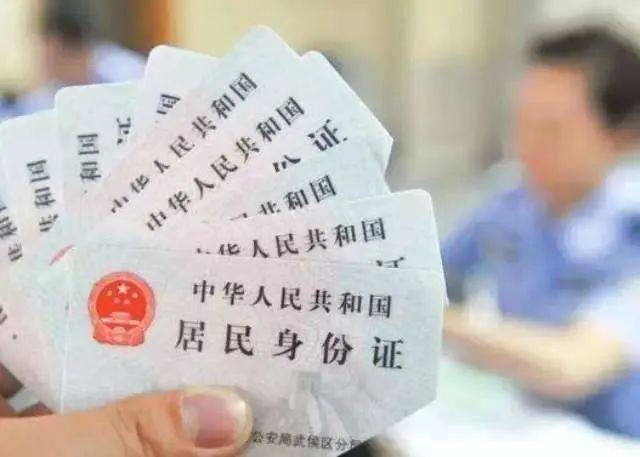 民共和国
中华人民共和国
中华人民共和国
份证
民共和国
中华人民共和国
证
中华人民共和国
居民身份证
公安局武侯区分局